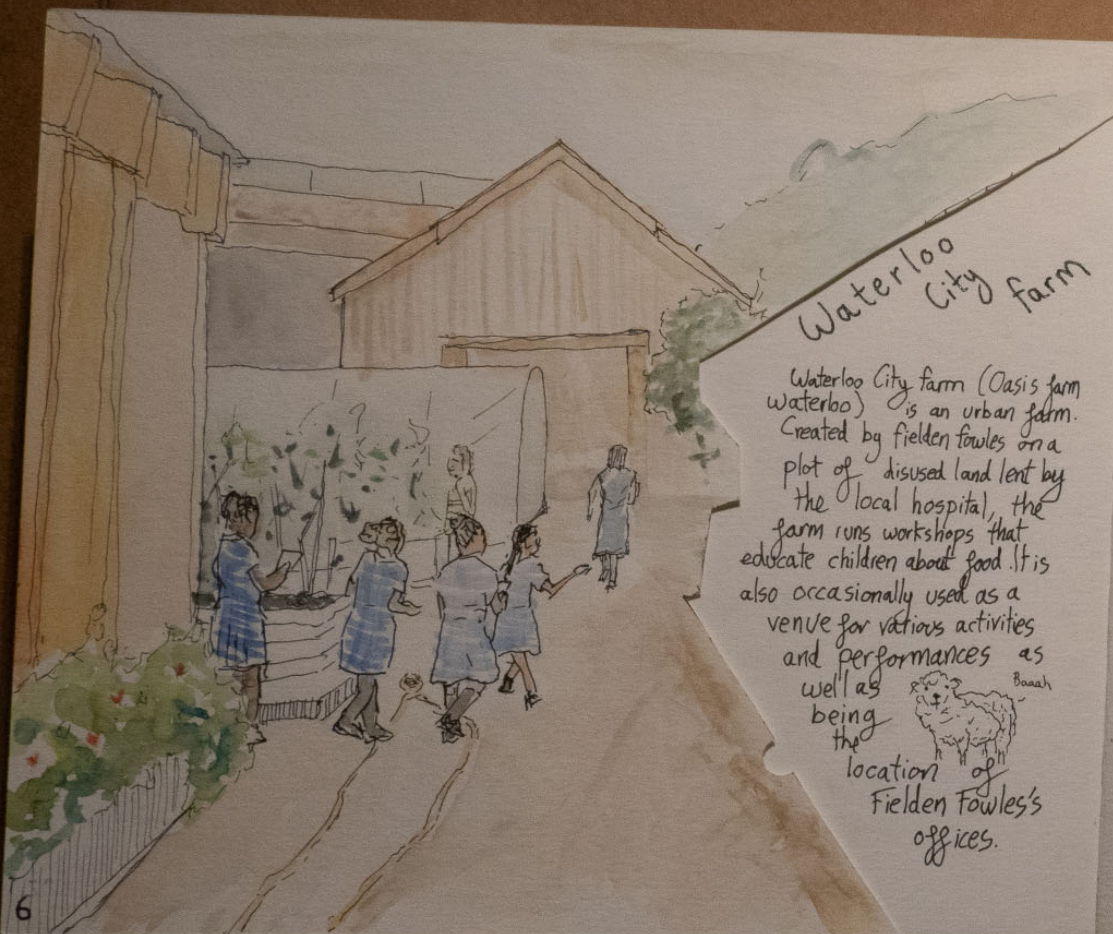 Waterloo
City farm
Waterloo City farm (Oasis farm
waterloo) is an urban farm.
Created by fielden fowles on a
plot of disused land lent by
the local hospital, the
farm runs workshops that
educate children about food. It is
also occasionally used as a
venue for various activities
and performances as
well as
Baaah
being
the
location of
Fielden Fowles's
offices.
6